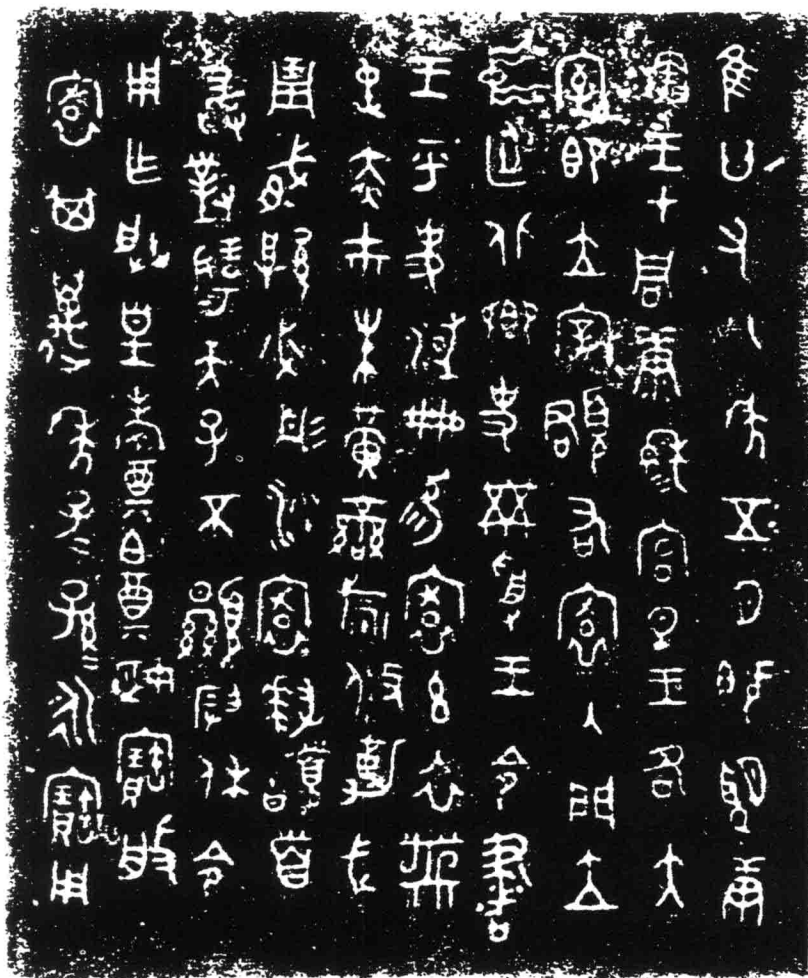 隹廿又八年五月既望庚
寅王才周康穆宮旦王各大
室即立宰頵右寰入門立
中廷北鄉史黹受王令書
王乎史減冊易寰玄衣黹
屯赤巿朱黃䜌旂攸勒戈
琱胾厚必彤沙寰拜𩒨首
敢對揚天子不顯叚休令
用乍朕皇考奠白奠姬寶般
寰其萬年子=孫=永寶用